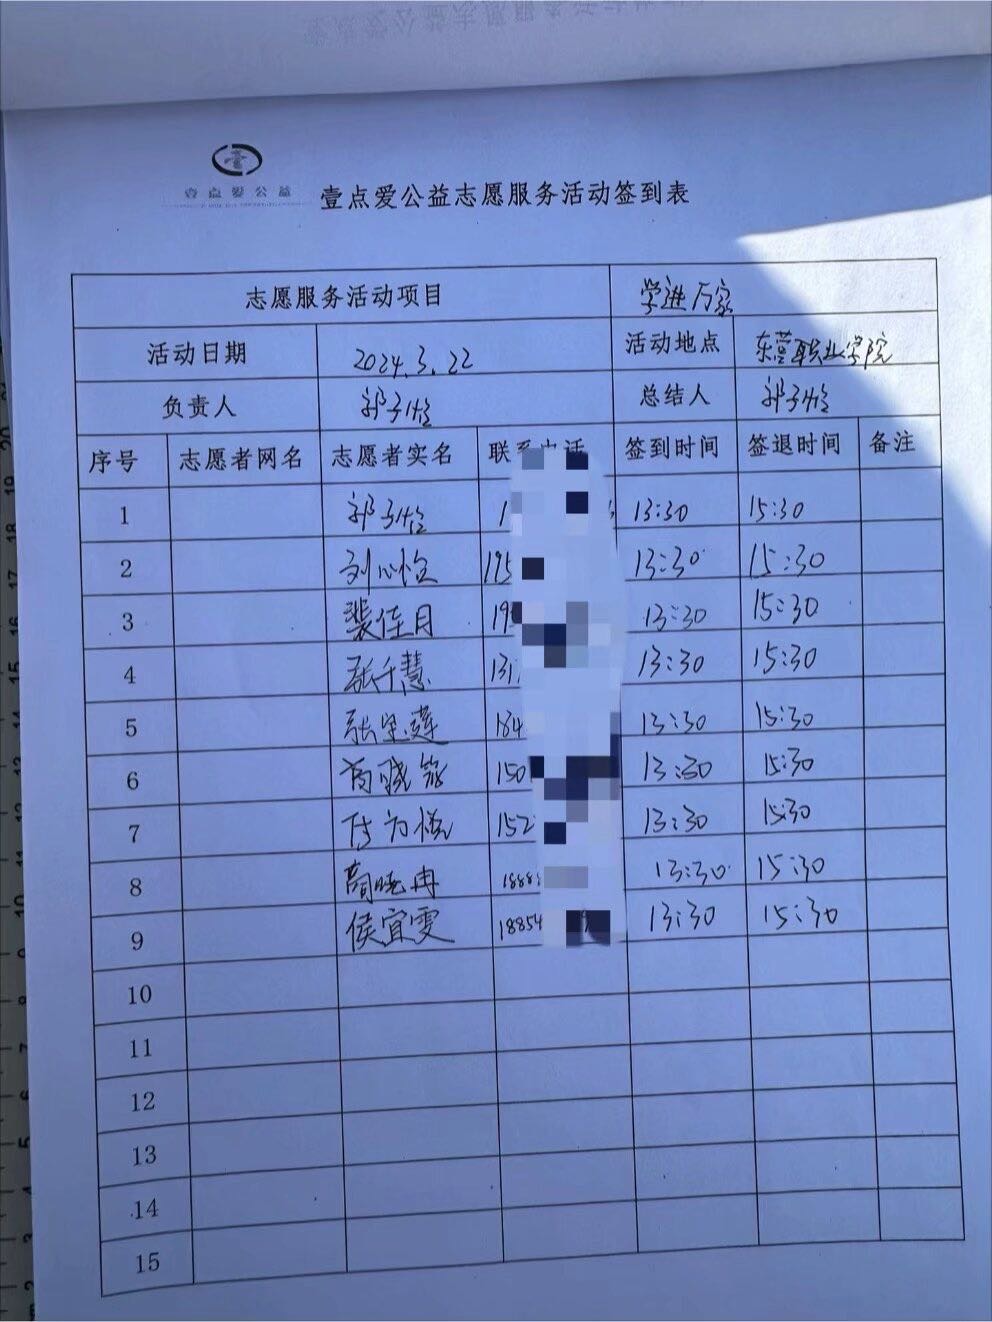 壹点爱公益
壹点爱公益志愿服务活动签到表
志愿服务活动项目 学进万家
活动日期 2024.3.22 活动地点 东营职业学院
负责人 郭子怡 总结人 郭子怡
序号 志愿者网名 志愿者实名 联系电话 签到时间 签退时间 备注
1 郭子怡 1 13:30 15:30
2 刘心怡 195 13:30 15:30
3 裴佳月 19 13:30 15:30
4 张千慧 131 13:30 15:30
5 184 13:30 15:30
6 150 13:30 15:30
7 152 13:30 15:30
8 高晓冉 1888 13:30 15:30
9 侯宜雯 18854 13:30 15:30
10
11
12
13
14
15